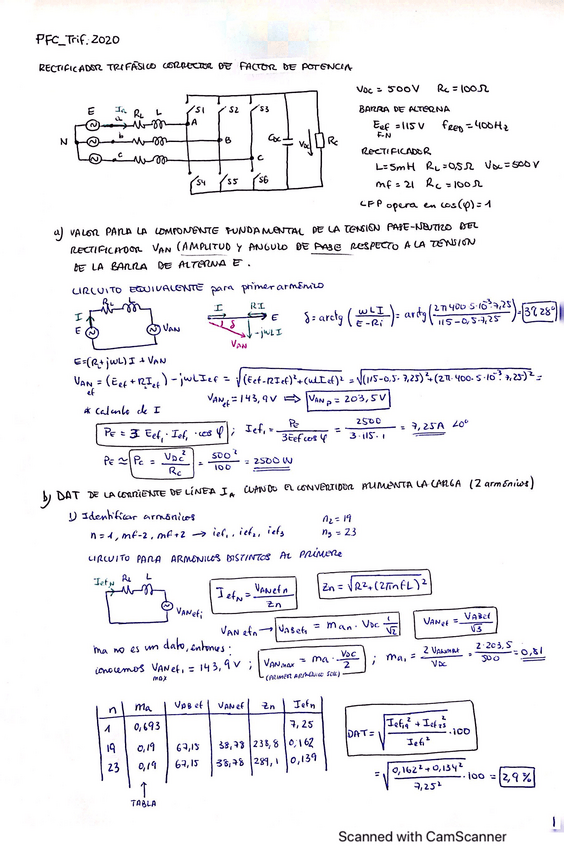 PFC_Trif. 2020
RECTIFICADOR TRIFÁSICO CORRECTOR DE FACTOR DE POTENCIA
VDC = 500V RC = 100Ω
BARRA DE ALTERNA
Eef = 115V fRED = 400Hz
F-N
RECTIFICADOR
L = 5mH RL = 0,5Ω VDC = 500V
mf = 21 RC = 100Ω
CFP opera en cos(φ) = 1
E Ia RL L S1 S2 S3
a A
N b B CDC VDC RC
c C
S4 S5 S6
a) VALOR PARA LA COMPONENTE FUNDAMENTAL DE LA TENSION FASE-NEUTRO DEL
RECTIFICADOR VAN (AMPLITUD Y ANGULO DE FASE RESPECTO A LA TENSION
DE LA BARRA DE ALTERNA E.
CIRCUITO EQUIVALENTE para primer armónico
RL L
I E VAN
I RI E
δ -jωLI
VAN
δ = arctg (ωLI / E-Ri) = arctg (2π400·5·10⁻³·7,25 / 115-0,5·7,25) = 39,28º
E = (R+jωL)I + VAN
VANef = (Eef + RIef) - jωLIef = √(Eef-RIef)²+(ωLIef)² = √(115-0,5·7,25)²+(2π·400·5·10⁻³·7,25)² =
VANef = 143,9V ⟹ VANp = 203,5V
* calculo de I
PE = 3 Eef1 · Ief1 · cos φ ; Ief1 = PE / 3Eef cosφ = 2500 / 3·115·1 = 7,25A ∠0º
PE ≈ PC = VDC² / RC = 500² / 100 = 2500W
b) DAT DE LA CORRIENTE DE LÍNEA IA CUANDO EL CONVERTIDOR ALIMENTA LA CARGA (2 armónicos)
1) Identificar armónicos
n = 1, mf-2, mf+2 → ief1, ief2, ief3
n2 = 19
n3 = 23
CIRCUITO PARA ARMONICOS DISTINTOS AL PRIMERO
IefN RL L
VANefi
Iefn = VANefn / Zn
Zn = √R²+(2πnfL)²
VANefn → VABefi = man · VDC 1/√2
VANef = VABef / √3
ma no es un dato, entonces:
conocemos VANef1 = 143,9V ;
max
VANmax = ma · VDC / 2
(PRIMER ARMÓNICO SOLO)
; ma1 = 2 VANmax / VDC = 2·203,5 / 500 = 0,81
n ma VABef VANef Zn Iefn
1 0,693 7,25
19 0,19 67,15 38,78 238,8 0,162
23 0,19 67,15 38,78 289,1 0,139
↑
TABLA
DAT = √Ief19² + Ief23² / Ief1² · 100
= √0,162² + 0,134² / 7,25² · 100 = 2,9%
1
Scanned with CamScanner